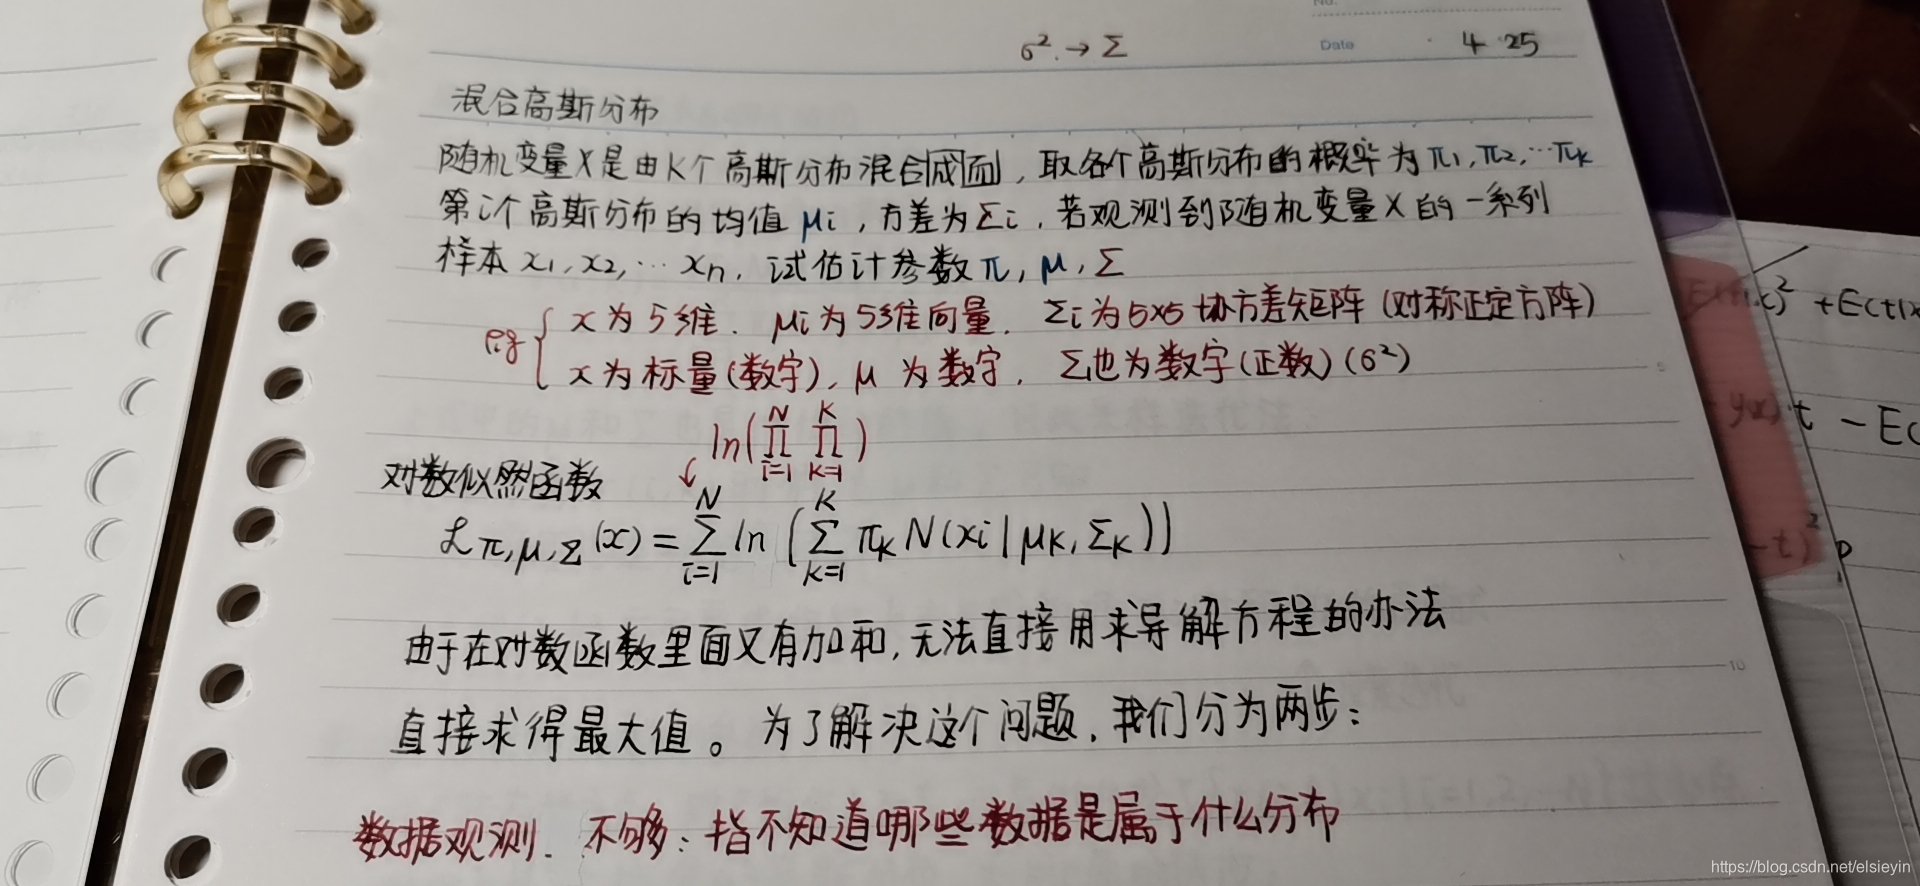 No.
σ². → Σ
Date 4 25
混合高斯分布
随机变量X是由K个高斯分布混合成而,取各个高斯分布的概率为π1,π2,…πk
第i个高斯分布的均值μi,方差为Σi.若观测到随机变量X的一系列
样本x1,x2,…xn,试估计参数π,μ,Σ
eg { x为5维. μi为5维向量. Σi为5×5协方差矩阵(对称正定方阵)
x为标量(数字),μ为数字. Σ也为数字(正数)(σ²)
ln(∏_{i=1}^{N} ∏_{k=1}^{K})
对数似然函数
ℒπ,μ,Σ(x)=∑_{i=1}^{N} ln(∑_{k=1}^{K} πk N(xi|μk,Σk))
由于在对数函数里面又有加和,无法直接用求导解方程的办法
直接求得最大值。为了解决这个问题,我们分为两步:
数据观测.不够:指不知道哪些数据是属于什么分布
5
10
² +E(t|x
y(x) t - E(
-t)²
https://blog.csdn.net/elsieyin